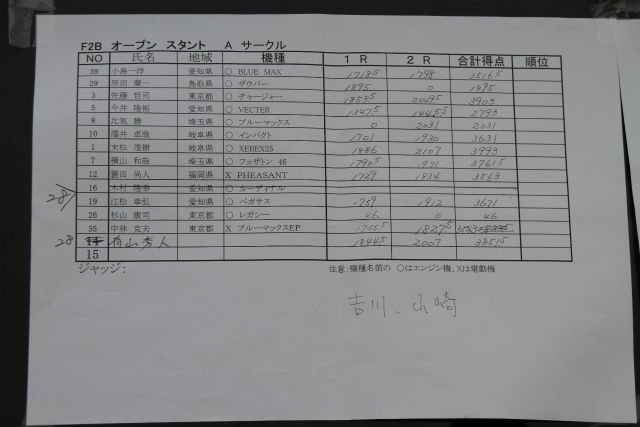 F2B オープン スタント A サークル
NO 氏名 地域 機種 1R 2R 合計得点 順位
39 小島一洋 愛知県 ○ BLUE MAX 1718.5 1798 3516.5
29 原田 鳥取県 ○ ザウバー 1895 0 1895
3 佐藤 哲司 東京都 ○ チャージャー 1853.5 2049.5 3903
5 今井 隆裕 愛知県 ○ VECTER 1347.5 1445.5 2793
8 比気 勝 埼玉県 ○ ブルーマックス 0 2031 2031
10 澤井 卓哉 岐阜県 ○ インパクト 1701 1930 3631
1 末松 茂樹 岐阜県 ○ XEBEX25 1886 2107 3993
7 横山 和哉 埼玉県 ○ フェザトン 46 1790.5 1971 3761.5
12 簑田 尚人 福岡県 X PHEASANT 1729 1834 3563
16 木村 隆幸 愛知県 ○ カーディナル
28
19 江松 幸弘 愛知県 ○ ペガサス 1759 1912 3671
26 杉山 康司 東京都 ○ レガシー 46 0 46
35 中林 克夫 東京都 X ブルーマックスEP 1755.5 1827.5
28 14 有山秀人 1844.5 2007 3851.5
15
ジャッジ: 注意:機種名前の ○はエンジン機、Xは電動機
吉川、山崎